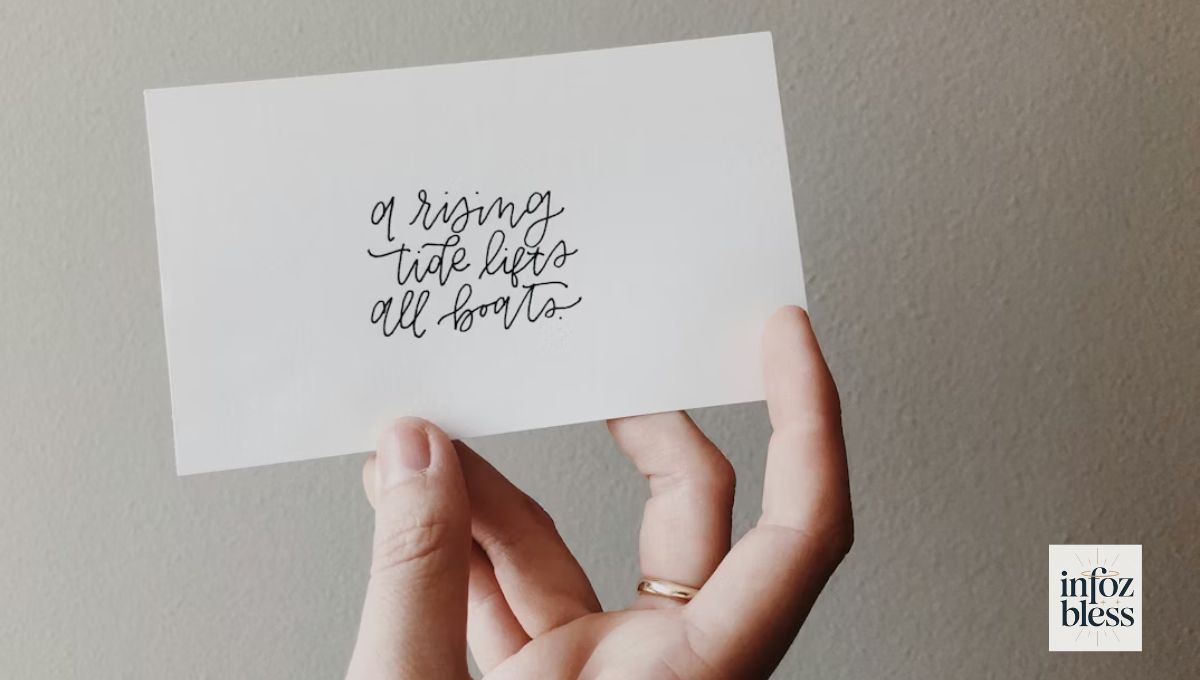 a rising
tide lifts
all boats.
infoz
bless